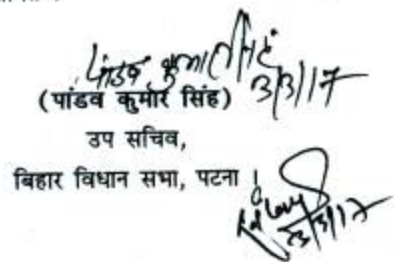 पांडव कुमार सिंह
3/3/17
(पांडव कुमार सिंह)
उप सचिव,
बिहार विधान सभा, पटना ।
3/3/17